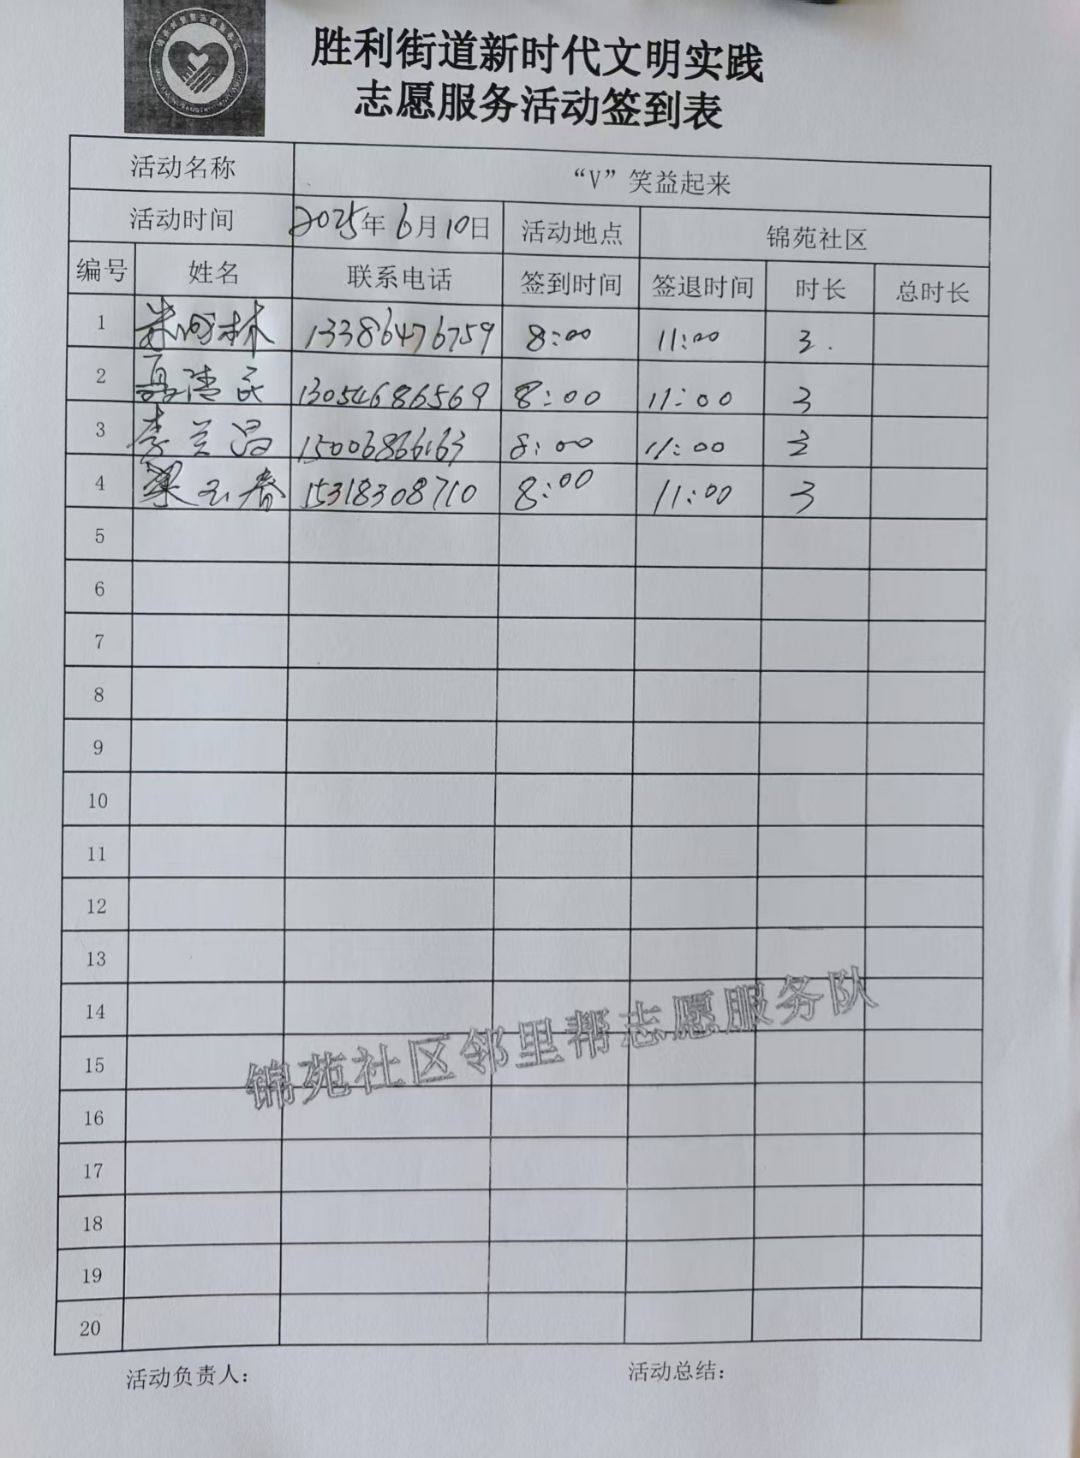 胜利街道新时代文明实践
志愿服务活动签到表
活动名称 “V”笑益起来
活动时间 2025年6月10日 活动地点 锦苑社区
编号 姓名 联系电话 签到时间 签退时间 时长 总时长
1 13386476759 8:00 11:00 3.
2 聂清民 13054686569 8:00 11:00 3
3 李兰昌 15006866163 8:00 11:00 3
4 梁玉春 15318308710 8:00 11:00 3
5
6
7
8
9
10
11
12
13
14
15
16
17
18
19
20
锦苑社区邻里帮志愿服务队
活动负责人: 活动总结: